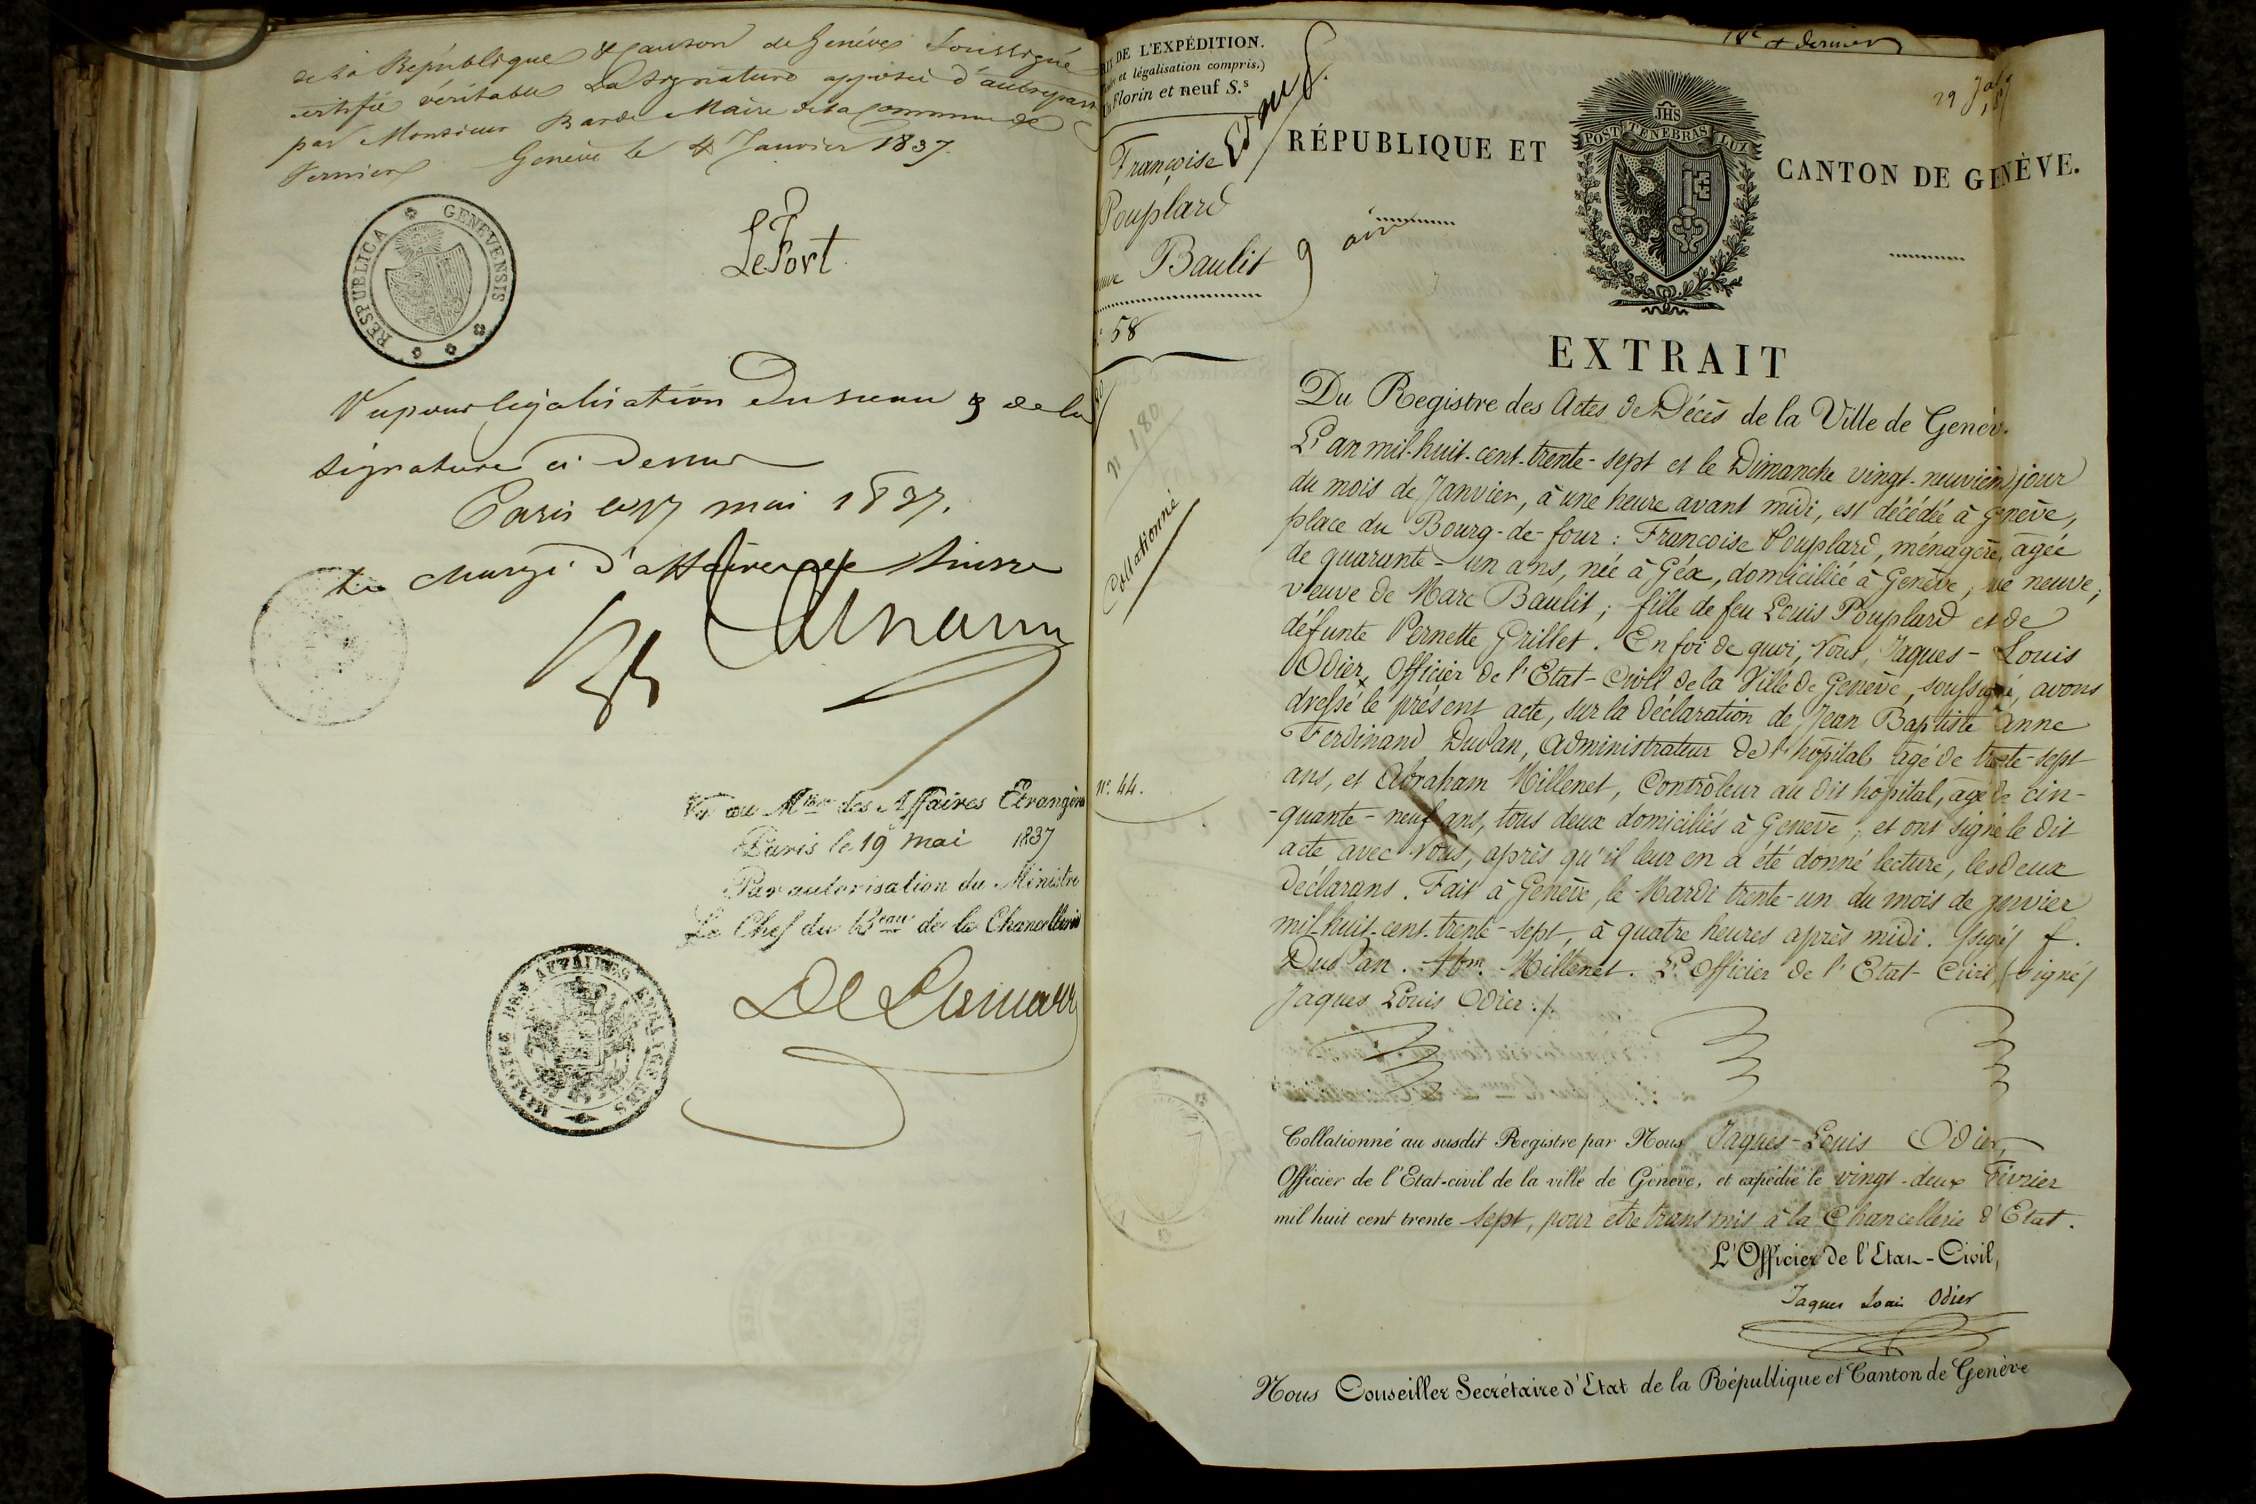 de la République & Canton de Genève Soussigné
certifie véritable la signature apposée d'autrepart
par Monsieur Barde Maire de la Commune de
Vernier Genève le 4 Janvier 1837.
LeFort
RESPUBLICA GENEVENSIS
Vu pour légalisation du sceau & de la
signature ci dessus
Paris le 17 mai 1837.
Le chargé d'affaires de Suisse
Vu au Mtère des Affaires Etrangères
Paris le 19 mai 1837
Par autorisation du Ministre
Le Chef du Beau de la Chancellerie
De Lamarre
MINISTÈRE DES AFFAIRES ETRANGÈRES
DE L'EXPÉDITION.
et légalisation compris.)
Florin et neuf S.s
Françoise
Pouplard
Baulit
58
n 180
Collationné
n.° 44.
18e et dernier
29 Jan
RÉPUBLIQUE ET CANTON DE GENÈVE.
JHS
POST TENEBRAS LUX
EXTRAIT
Du Registre des Actes de Décès de la Ville de Genève.
L'an mil-huit-cent-trente-sept et le Dimanche vingt-neuvième jour
du mois de Janvier, à une heure avant midi, est décédée à Genève,
place du Bourg-de-four : Françoise Pouplard, ménagère, agée
de quarante-un ans, née à Géx, domiciliée à Genève, rue neuve,
veuve de Marc Baulit ; fille de feu Louis Pouplard et de
défunte Pernette Grillet. En foi de quoi, Nous, Jaques-Louis
Odier, Officier de l'Etat-Civil de la Ville de Genève, soussigné, avons
dressé le présent acte, sur la déclaration de Jean Baptiste Anne
Ferdinand Duvan, Administrateur de l'hôpital agé de trente-sept
ans, et Abraham Millenet, Contrôleur au dit hôpital, agé de cin-
-quante-neuf ans, tous deux domiciliés à Genève ; et ont signé le dit
acte avec Nous, après qu'il leur en a été donné lecture, les deux
déclarans. Fait à Genève, le Mardi trente-un du mois de janvier
mil-huit-cent-trente-sept, à quatre heures après midi. (signé) f.
Duvan. Abm. Millenet. L'Officier de l'Etat-Civil, (signé)
Jaques Louis Odier :/.
Collationné au susdit Registre par Nous Jaques-Louis Odier,
Officier de l'Etat-civil de la ville de Genève, et expédié le vingt-deux Février
mil huit cent trente sept, pour être transmis à la Chancellerie d'Etat.
L'Officier de l'Etat-Civil,
Jaques Louis Odier
Nous Conseiller Secrétaire d'Etat de la République et Canton de Genève